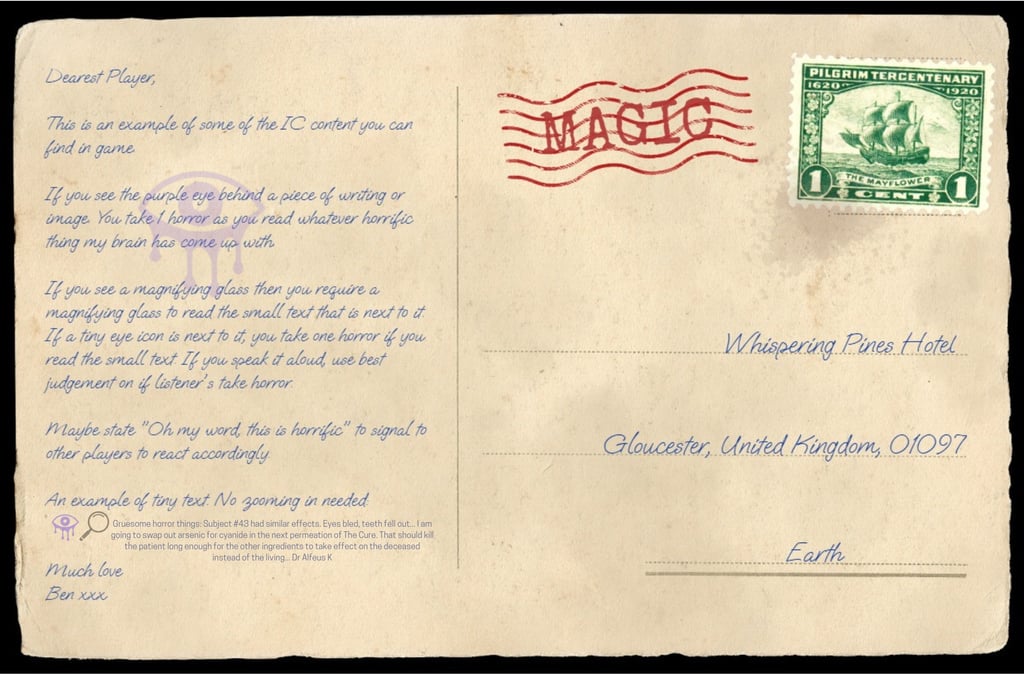 Dearest Player,
This is an example of some of the IC content you can
find in game.
If you see the purple eye behind a piece of writing or
image. You take 1 horror as you read whatever horrific
thing my brain has come up with.
If you see a magnifying glass then you require a
magnifying glass to read the small text that is next to it.
If a tiny eye icon is next to it, you take one horror if you
read the small text. If you speak it aloud, use best
judgement on if listener's take horror.
Maybe state "Oh my word, this is horrific" to signal to
other players to react accordingly.
An example of tiny text. No zooming in needed.
Gruesome horror things: Subject #43 had similar effects. Eyes bled, teeth fell out... I am
going to swap out arsenic for cyanide in the next permeation of The Cure. That should kill
the patient long enough for the other ingredients to take effect on the deceased
instead of the living... Dr Alfeus K
Much love
Ben xxx
MAGIC
PILGRIM TERCENTENARY
1620 1920
THE MAYFLOWER
1 CENT 1
Whispering Pines Hotel
Gloucester, United Kingdom, 01097
Earth